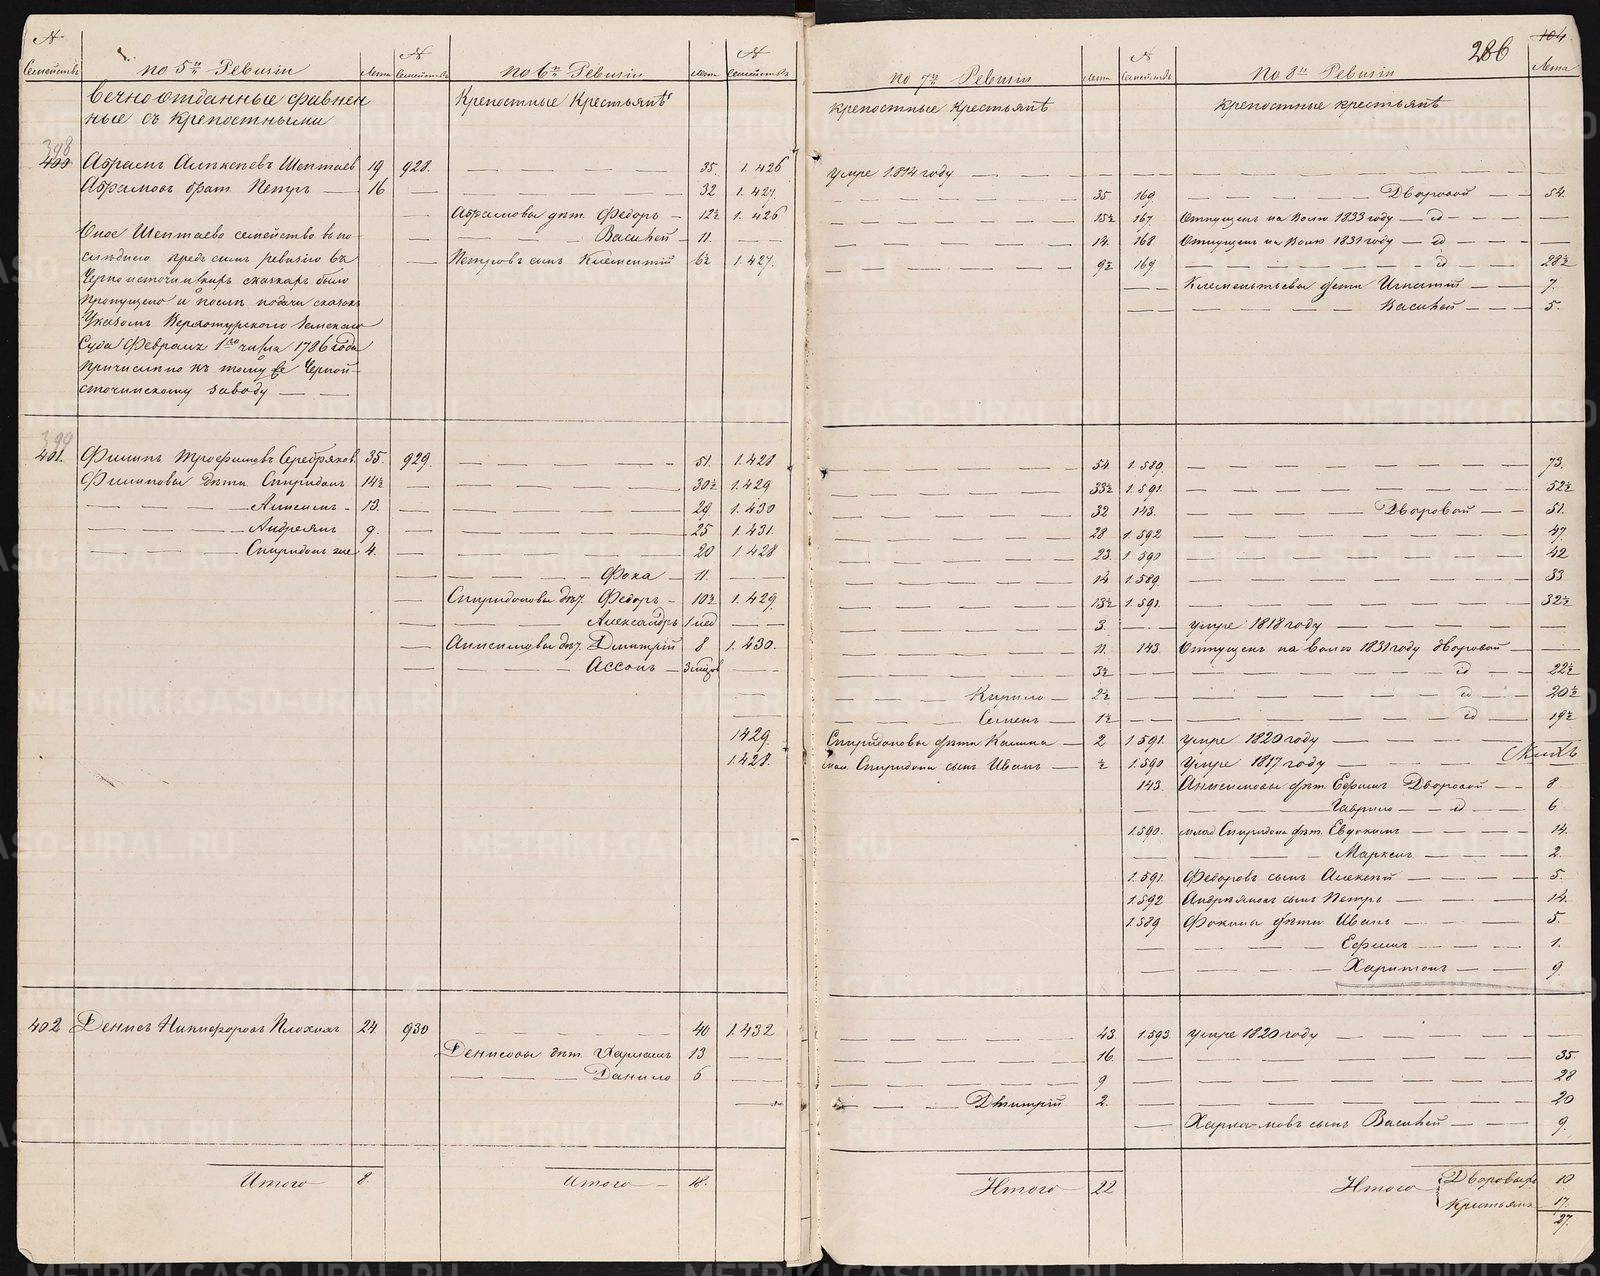 № Семействъ
по 5й Ревизiи
Лета
№ Семействъ
по 6й Ревизiи
Лета
№ Семействъ
Вечно отданные сравнен
ные съ крепостными
Крепостные Крестьянѣ
398
400 Абрамъ Алексеевъ Шептаев 19 928. — — — 35. 1.426
Абрамовъ брат. Петръ — 16 — — — 32 1.427.
— Абрамовы дѣт. Федоръ — 12½ 1.426
— — — Василей — 11. — —
— Петровъ сынъ Клементiй 6½ 1.427.
Оное Шептаево семейство въ по
следнию предъ симъ ревизiю въ
Черноисточинскихъ сказкахъ было
пропущено и после подачи сказокъ
Указомъ Верхотурского Земского
Суда Февраля 1го числа 1786 года
причислено къ тому же Черной-
сточинскому заводу — —
399
401. Филипъ Трофимовъ Серебряков. 35. 929. — — — 51. 1.428
Филиповы дѣти. Спиридонъ 14½ — — — 30½ 1.429
— — Анисимъ — 13. — — — 29. 1.430
— — Андреянъ 9. — — — 25 1.431.
— — Спиридонъ же 4. — — — 20 1.428
— — — Фока — 11. — —
— Спиридоновы дѣт. Федоръ — 10½ 1.429.
— — — Александръ 1 нед — —
— Анисимовы дѣт. Дмитрiй 8 1.430.
— — — Ассонъ — 3 мцов — —
— —
1429.
1428.
402 Денисъ Никифоровъ Плохихъ 24 930 — — — 40 1.432
Денисовы дѣт. Харламъ 13 — —
— — — Данило 6 — —
— —
Итого 8.
Итого — 18.
286
104
по 7й Ревизiи
Лета
№ Семействъ
По 8й Ревизiи
Лета
крепостные Крестьянѣ
крепостные крестьянѣ
умре 1814 году — — — — —
— — — 35 169. — Дворовой — — 54.
— — — 15½ 167. Отпущенъ на волю 1833 году — id — — —
— — — 14. 168 Отпущенъ на Волю 1831 году — id — — —
— — — 9½ 169 — — — id — — 28½
— — Клементьевы дети Игнатiй — — 7.
— — — — — Василей — — 5.
— — — 54. 1.589. — — — 73.
— — — 33½ 1.591. — — — 52½
— — — 32 143. — — Дворовой — — 51.
— — — 28 1.592 — — — 47.
— — — 23. 1.590 — — — 42
— — — 14 1.589. — — — 33
— — — 13½ 1.591. — — — 32½
— — — 3. — — умре 1818 году — — —
— — — 11. 143. Отпущенъ на волю 1831 году дворовой — —
— — — 3½ — — — — id — 22½
— — Кирило — 2½ — — — — id — 20½
— — Семенъ — 1½ — — — — id — 19½
Спиридоновы дѣти Калина — 2 1.591. умре 1820 году — — —
мал. Спиридона сынъ Иванъ — ½ 1.590 Умре 1817 году — —
143. Анисимовы дѣт. Ефимъ Дворовой — — 8
— — — Гаврило — id — — 6
1.590. млад Спиридона дѣт. Евдокимъ — — — 14.
— — — Маркелъ — — — 2.
1.591. Федоровъ сынъ Алексей — — — 5.
1.592 Андреяновъ сынъ Петръ — — — 14.
1.589 Фокины дѣти Иванъ — — — 5.
— — — Ефимъ — — — 1.
— — — Харитонъ — — — 9.
— — — 43. 1.593. умре 1820 году — — —
— — — 16. — — — — 35.
— — — 9 — — — — 28
— — Дмитрiй 2. — — — — 20
— Харламовъ сынъ Василей — — — 9.
Итого 22
Итого Дворовыхъ 10
Крестьянъ 17.
27.
METRIKI.GASO-URAL.RU